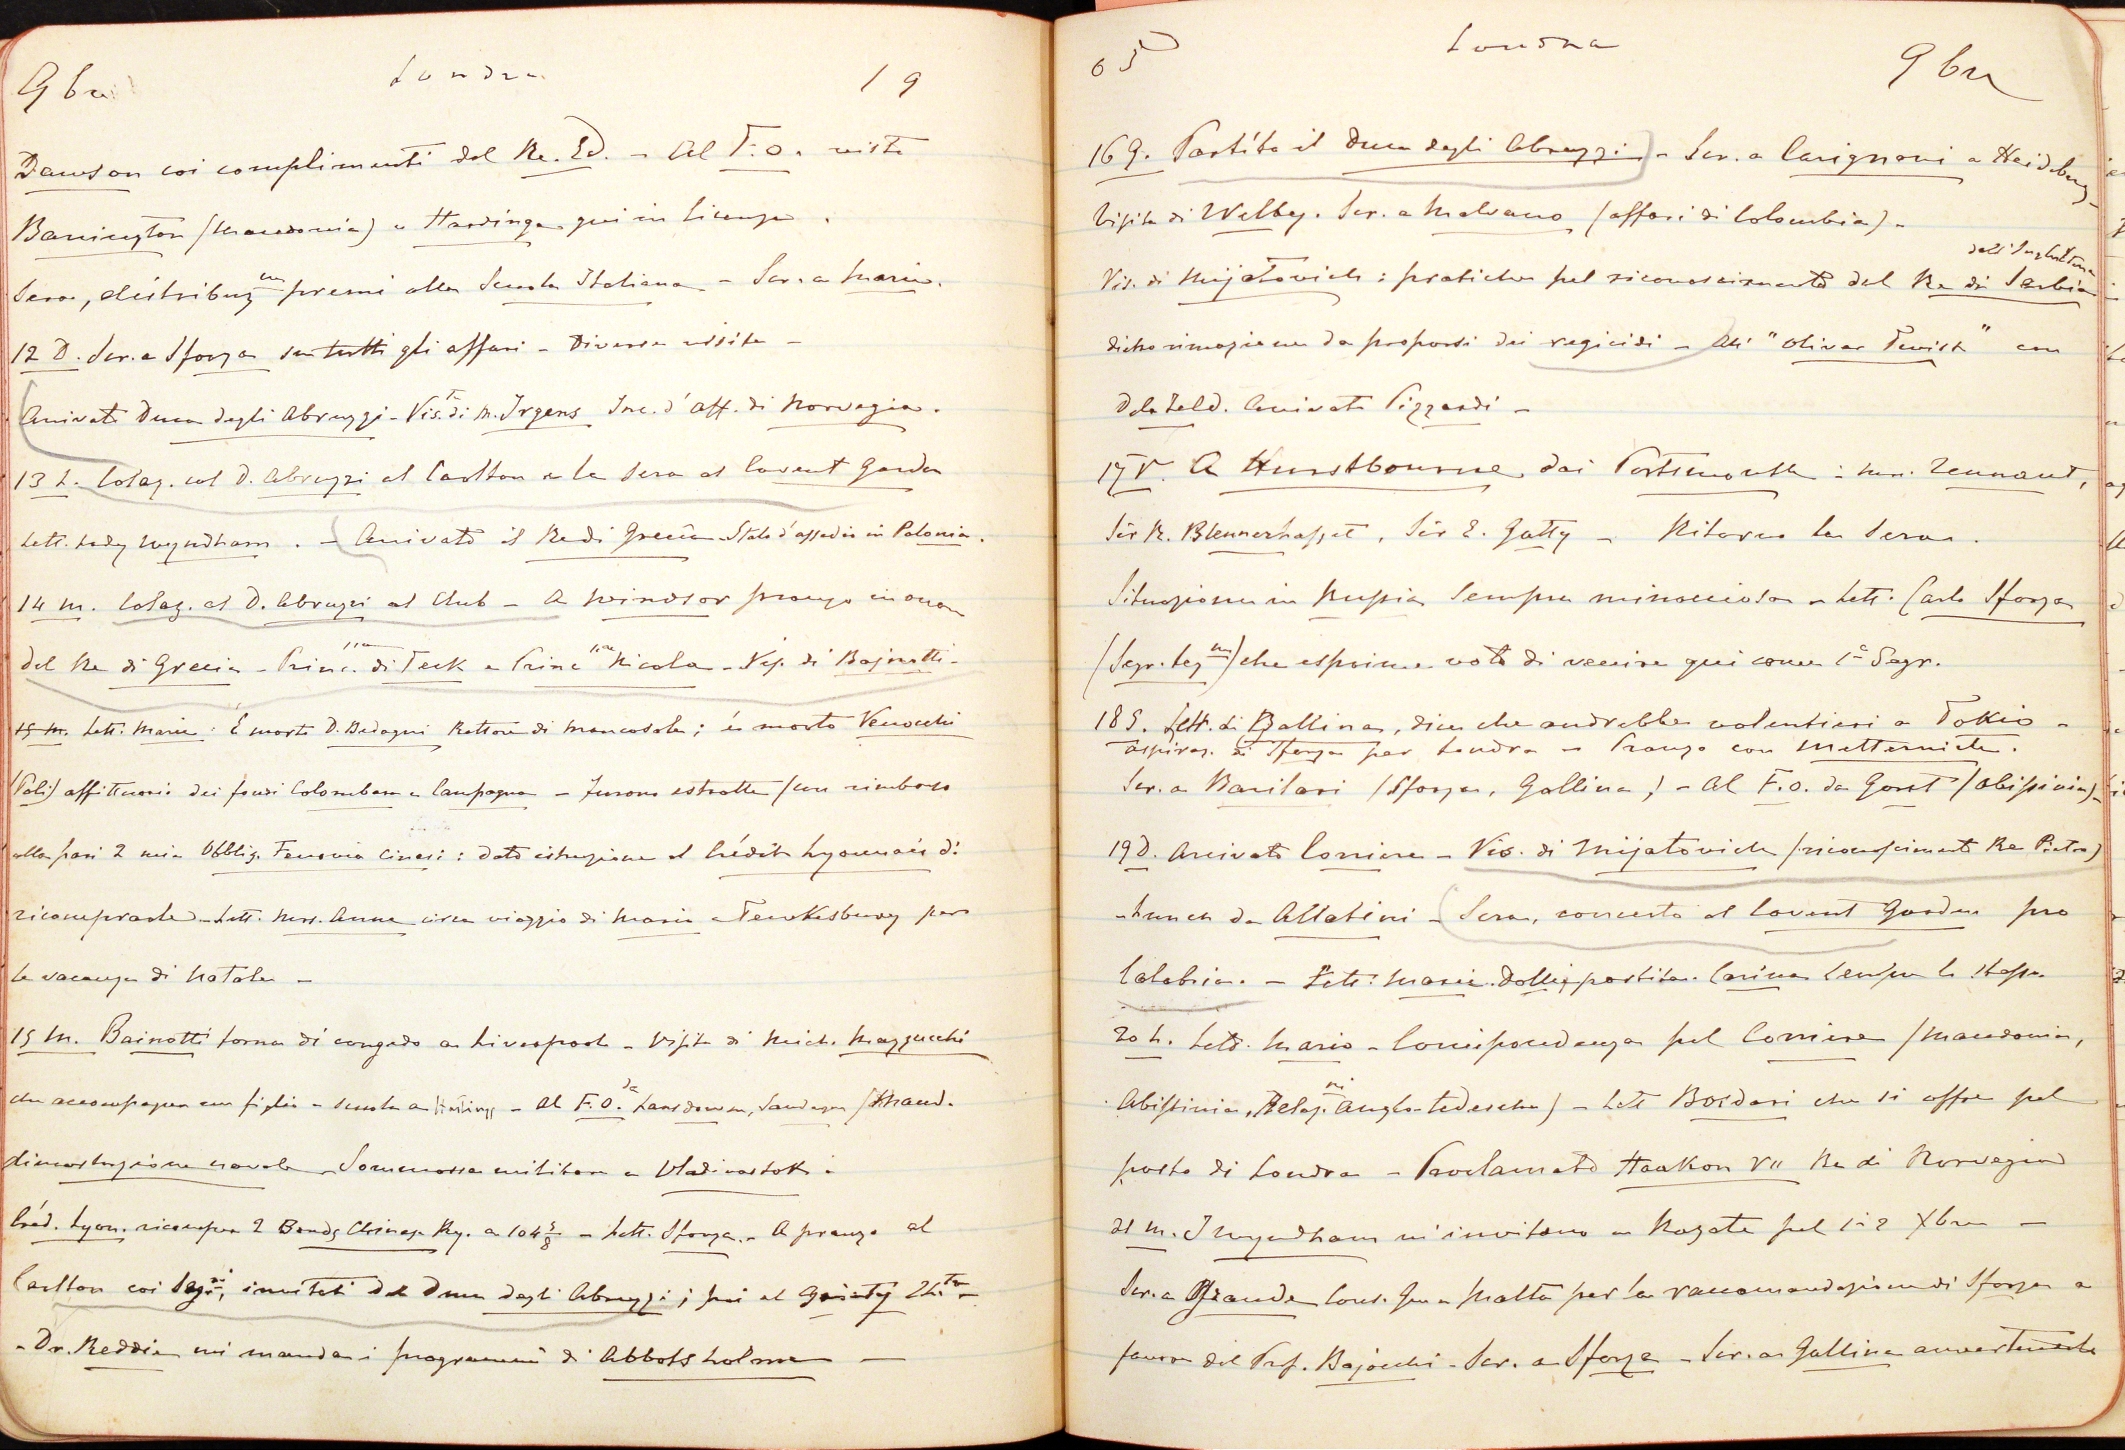 9bre Londra 19
Dawson coi complimenti del Re. Ed. - Al F.O. visto
Barrington (Macedonia) e Hardinge qui in licenza.
Sera, distribuz.ne premi alla Scuola Italiana - Scr. a Mario.
12 D. Scr. a Sforza su tutti gli affari - Diverse visite -
Arrivato Duca degli Abruzzi - Vis. di M. Irgens Inc. d'Aff. di Norvegia.
13 L. Colaz. col D. Abruzzi al Carlton e la sera al Covent Garden
Lett. Lady Wyndham. - Arrivato il Re di Grecia - Stato d'assedio in Polonia.
14 M. Colaz. al D. Abruzzi al Club - A Windsor pranzo in onore
del Re di Grecia - Princ. di Teck e Princ Nicola - Vis. di Bajnotti -
15 M. Lett. Mario: È morto D. Bedogni Rettore di Mancasale; è morto Venocchi
(Poli) affittuario dei fondi Colombara e Campagna - Furono estratte (con rimborso
alla pari 2 mie Obblig. Ferrovia Cinesi: dato istruzione al Crédit Lyonnais di
ricomprarle - Lett. Mrs. Anne circa viaggio di Mario a Tewkesbury per
le vacanze di Natale -
15 M. Bainotti torna di congedo a Liverpool - Visita di Mich. Mazzucchi
che accompagna un figlio - scuola a Hastings - Al F.O. da Lansdowne, Sanderson (Maced.
dimostrazione navale - Sommossa militare a Vladivostok -
Créd. Lyon. ricompra 2 Bonds Chinese Ry. a 104 5/8 - Lett. Sforza - A pranzo al
Carlton coi Segri, invitati dal Duca degli Abruzzi; poi al Gaiety Th.tre -
- Dr. Reddie mi manda i programmi di Abbotsholme -
05 Londra 9bre
16 G. Partito il Duca degli Abruzzi - Scr. a Carignani a Heidelberg -
Visita di Welby. Scr. a Malvano (affari di Colombia) -
dall'Inghilterra
Vis. di Mijatovich: pratiche pel riconoscimento del Re di Serbia
dietro rimozione da proporsi dei regicidi - All' "Oliver Twist" con
Delafeld. Arrivato Pizzardi -
17 V. A Hurstbourne dai Portsmouth: Mrs. Tennant,
Sir R. Blennerhasset, Sir E. Gatty - Ritorno la sera.
Situazione in Russia sempre minacciosa - Lett. Carlo Sforza
(Segr. Leg.ne) che esprime voto di venire qui come 1° Segr.
18 S. Lett. di Gallina, dice che andrebbe volentieri a Tokio -
aspiraz. di Sforza per Londra - Pranzo con Metternich.
Scr. a Barilari (Sforza, Gallina,) - Al F.O. da Gorst (Abissinia) -
19 D. Arrivato Corriere - Vis. di Mijatovich (riconoscimento Re Pietro)
- Lunch da Allatini - Sera, concerto al Covent Garden pro
Calabria. - Lett. Mario. Dollie partita. Carina sempre la stessa
20 L. Lett. Mario - Corrispondenza pel Corriere (Macedonia,
Abissinia, Relaz.ni Anglo-tedesche) - Lett Bordari che si offre pel
posto di Londra - Proclamato Haakon VII Re di Norvegia
21 M. I Wyndham m'invitano a Rogate pel 1-2 Xbre -
Scr. a Grande Cons. Gen a Malta per la raccomandazione di Sforza a
favore del Prof. Bajocchi - Scr. a Sforza - Scr. a Gallina avvertendolo